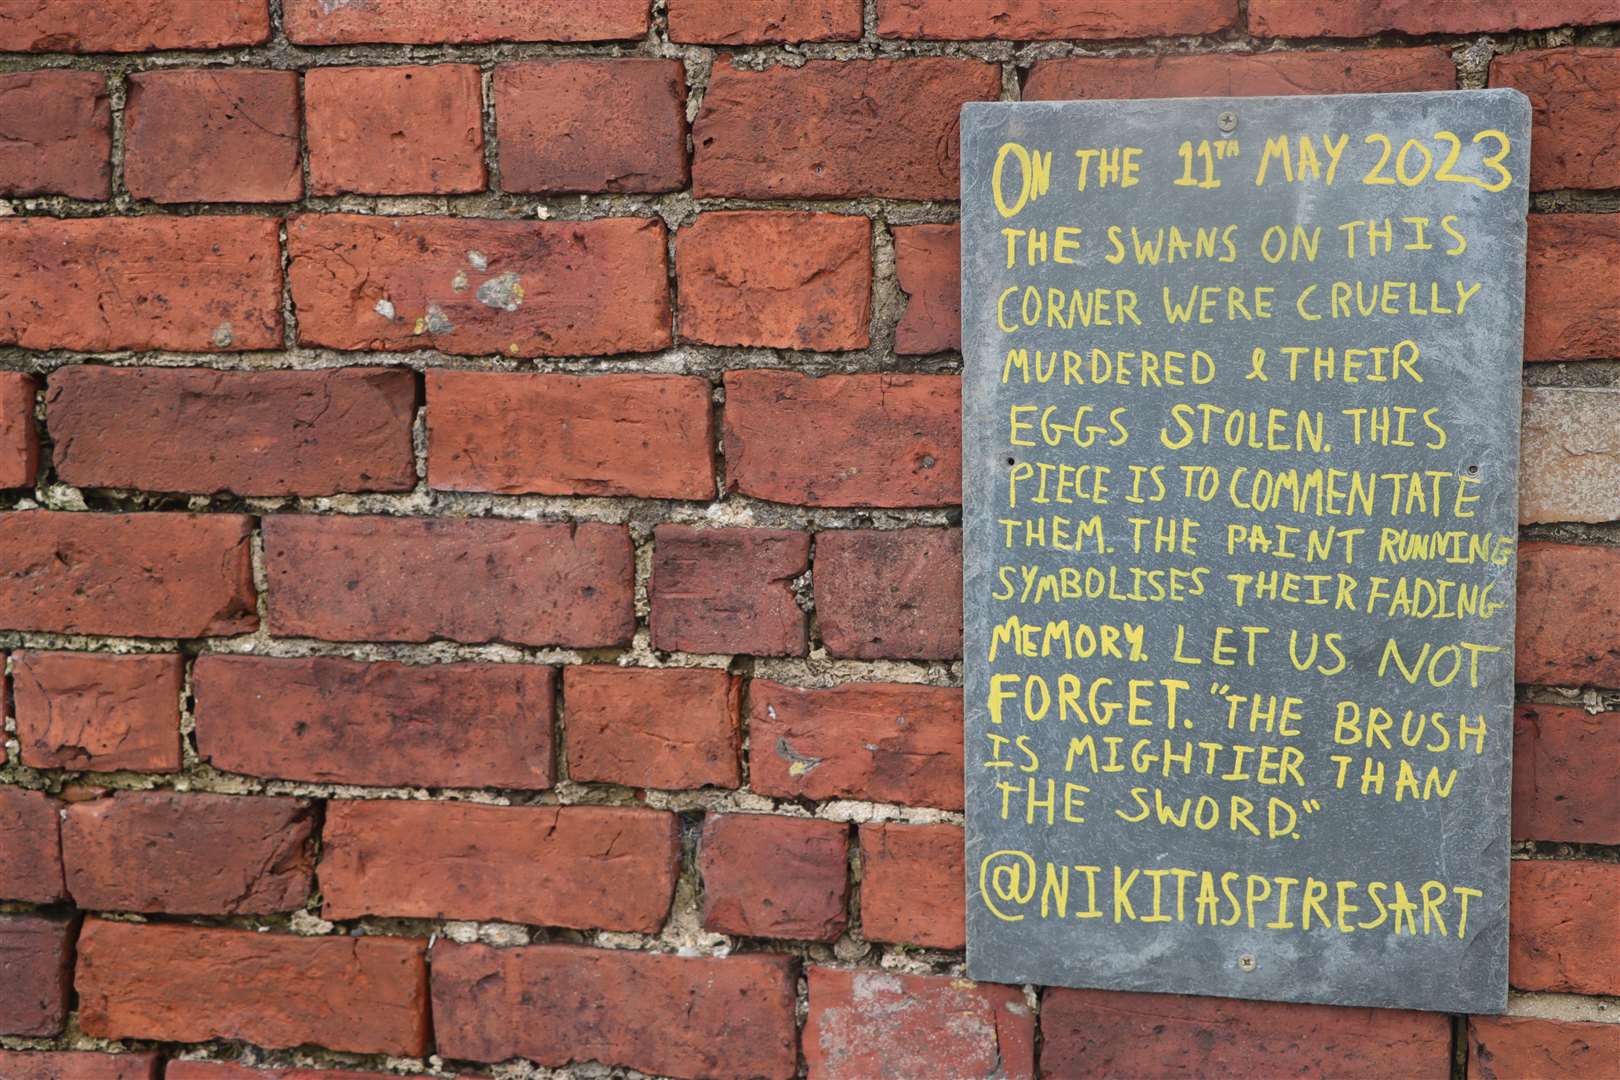 ON THE 11TH MAY 2023
THE SWANS ON THIS
CORNER WERE CRUELLY
MURDERED & THEIR
EGGS STOLEN. THIS
PIECE IS TO COMMENTATE
THEM. THE PAINT RUNNING
SYMBOLISES THEIR FADING
MEMORY. LET US NOT
FORGET. "THE BRUSH
IS MIGHTIER THAN
THE SWORD."
@NIKITASPIRESART